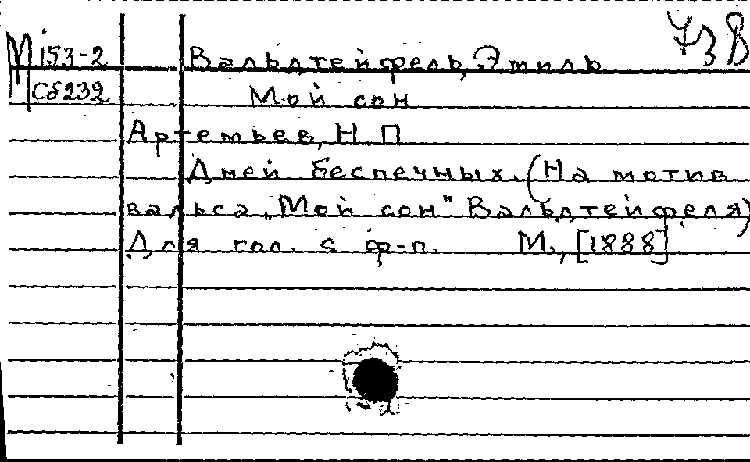 738
М 153-2 Вальдтейфель, Эмиль
Сб232 Мой сон
Артемьев, Н.П
Дней беспечных. (На мотив
вальса „Мой сон" Вальдтейфеля)
Для гол. с ф-п. М., [1888]